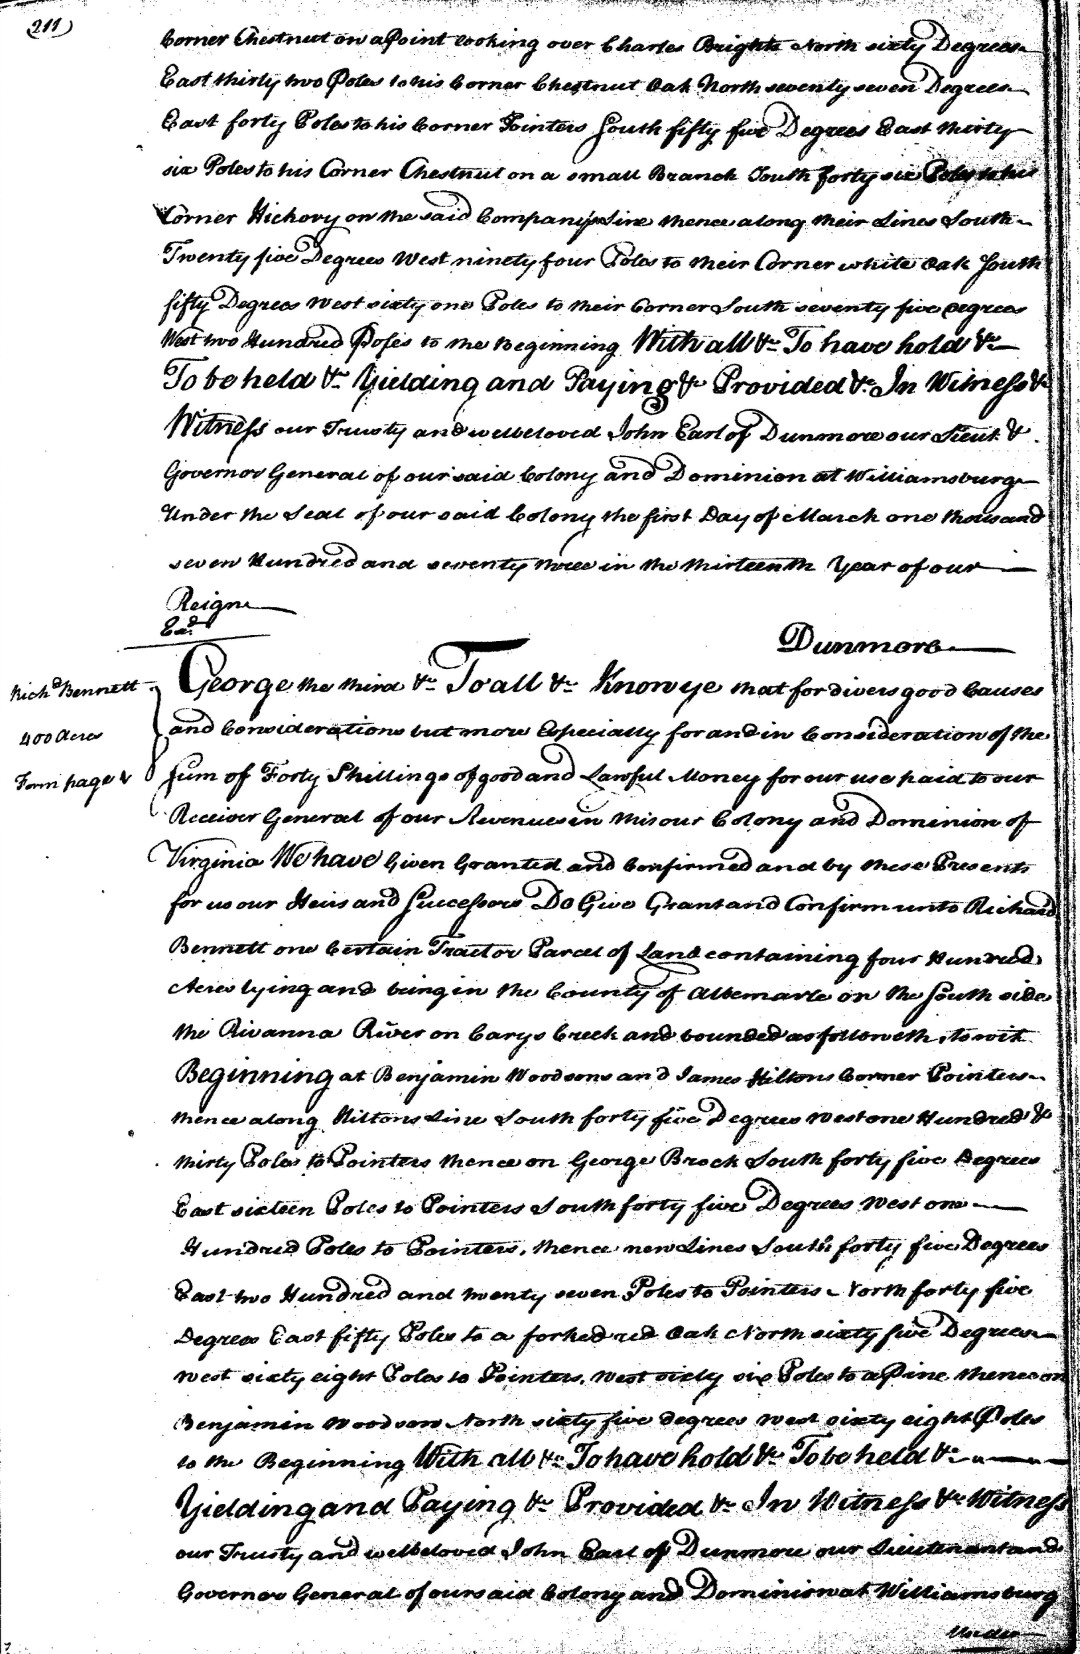 211)
Corner Chestnut on a Point looking over Charles Brights North sixty Degrees
East thirty two Poles to his Corner Chestnut Oak North seventy seven Degrees
East forty Poles to his Corner Pointers South fifty five Degrees East thirty
six Poles to his Corner Chestnut on a small Branch South forty six Poles to his
Corner Hickory on the said Companys Line thence along their Lines South
Twenty five Degrees West ninety four Poles to their Corner white Oak South
fifty Degrees West sixty one Poles to their Corner South seventy five Degrees
West two Hundred Poles to the Beginning With all &c To have hold &c
To be held &c Yielding and Paying &c Provided &c In Witness &c
Witness our Trusty and welbeloved John Earl of Dunmore our Lieut. &
Governor General of our said Colony and Dominion at Williamsburg
Under the Seal of our said Colony the first Day of March one thousand
seven Hundred and seventy three in the thirteenth Year of our
Reign
Exd.
Dunmore
Richd Bennett
400 Acres
George the third &c To all &c Know ye that for divers good Causes
and Considerations but more Especially for and in Consideration of the
Sum of Forty Shillings of good and Lawful Money for our use paid to our
Receiver General of our Revenues in this our Colony and Dominion of
Virginia We have Given Granted and Confirmed and by these Presents
for us our Heirs and Successors Do Give Grant and Confirm unto Richard
Bennett one Certain Tract or Parcel of Land containing four Hundred
Acres lying and being in the County of Albemarle on the South side
the Rivanna River on Carys Creek and bounded as followeth, to wit
Beginning at Benjamin Woodsons and James Hiltons Corner Pointers
thence along Hiltons Line South forty five Degrees West one Hundred &
thirty Poles to Pointers thence on George Brock South forty five Degrees
East sixteen Poles to Pointers South forty five Degrees West one
Hundred Poles to Pointers, thence new Lines South forty five Degrees
East two Hundred and twenty seven Poles to Pointers North forty five
Degrees East fifty Poles to a forked red Oak North sixty five Degrees
West sixty eight Poles to Pointers, West sixty six Poles to a Pine thence on
Benjamin Woodson North sixty five degrees West sixty eight Poles
to the Beginning With all &c To have hold &c To be held &c
Yielding and Paying &c Provided &c In Witness &c Witness
our Trusty and welbeloved John Earl of Dunmore our Lieutenant and
Governor General of our said Colony and Dominion at Williamsburg
Under